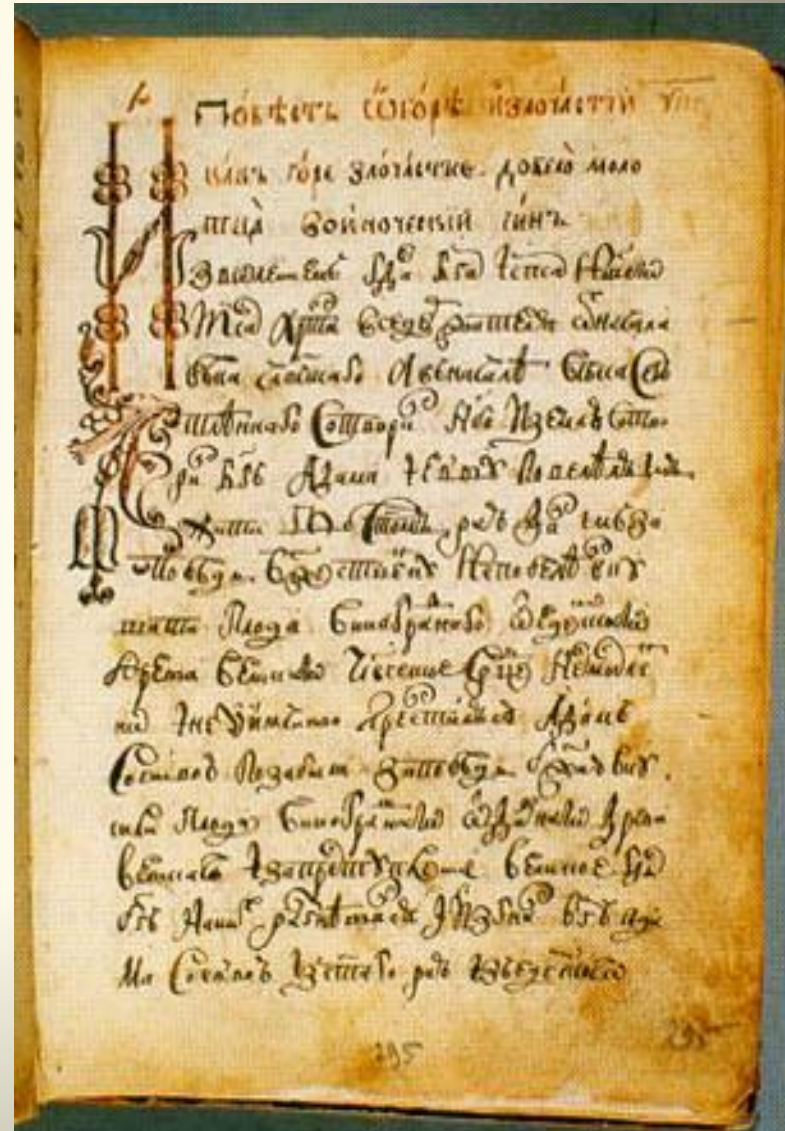 Повѣсть ѡ горѣ и злочастіи
какъ горе злочастие довело моло
тца во иноческий чинъ
Изволениемъ гда бга и спса нашего
Иса Хрта вседержителя ѿ начала
века человеческаго А в начале века сего
тлѣннаго Сотвори нбо и землю Сотво
ри бгъ Адама и Еввѹ повелѣлъ имъ
жити во святомъ раю да имъ запо
ведь бжественѹ не повелѣ вкѹ
шати плода виноградного ѿ едемскаго
древа великаго Человеческое срце несмысле
но и неѹимчиво прелстился Адамъ
со Еввою позабыли заповедь бжию вкѹ
сили плода винограднаго ѿ дивнаго древа
великаго и за престѹпление великое гдь
бгъ на них разгневался и изгна бгъ Ада
ма со Еввою из святаго раю из едемскаго
295
295